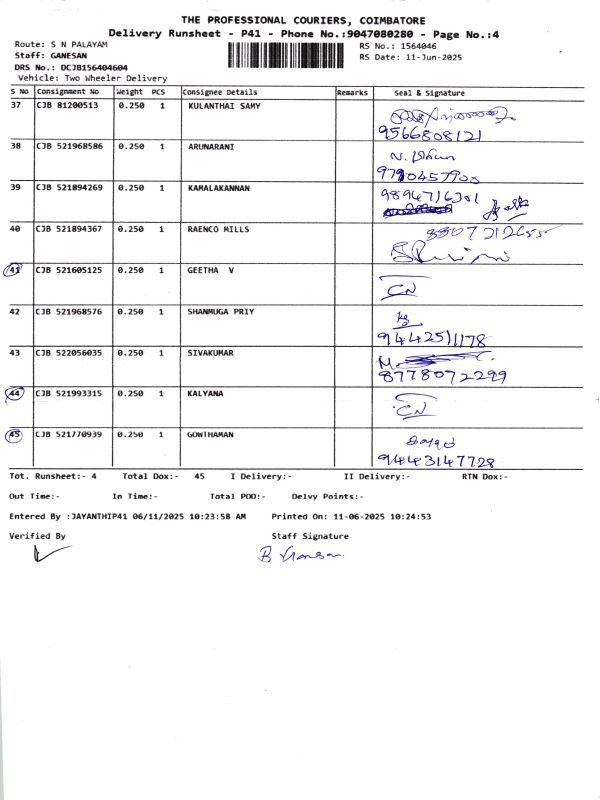 THE PROFESSIONAL COURIERS, COIMBATORE
Delivery Runsheet - P41 - Phone No.:9047080280 - Page No.:4
Route: S N PALAYAM RS No.: 1564046
Staff: GANESAN RS Date: 11-Jun-2025
DRS No.: DCJB156404604
Vehicle: Two Wheeler Delivery
S No Consignment No Weight PCS Consignee Details Remarks Seal & Signature
37 CJB 81200513 0.250 1 KULANTHAI SAMY
9566808121
38 CJB 521968586 0.250 1 ARUNARANI
39 CJB 521894269 0.250 1 KAMALAKANNAN 9894716301
40 CJB 521894367 0.250 1 RAENCO MILLS
41 CJB 521605125 0.250 1 GEETHA V
CN
42 CJB 521968576 0.250 1 SHANMUGA PRIY
9442511178
43 CJB 522056035 0.250 1 SIVAKUMAR
8778072299
44 CJB 521993315 0.250 1 KALYANA
CN
45 CJB 521770939 0.250 1 GOWTHAMAN
9443147728
Tot. Runsheet:- 4 Total Dox:- 45 I Delivery:- II Delivery:- RTN Dox:-
Out Time:- In Time:- Total POD:- Delvy Points:-
Entered By :JAYANTHIP41 06/11/2025 10:23:58 AM Printed On: 11-06-2025 10:24:53
Verified By Staff Signature